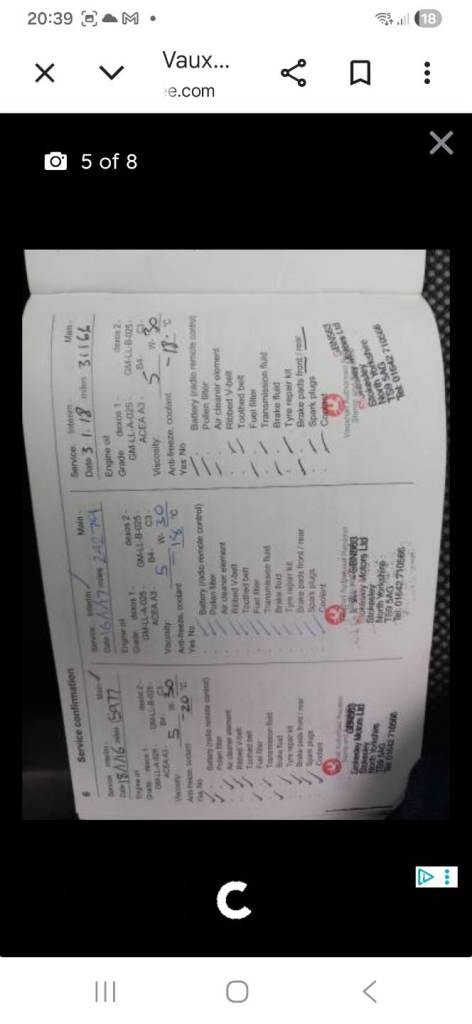 20:39
18
Vaux...
e.com
5 of 8
6 Service confirmation
Service Interim - Main -
Date 18/1/16 miles
Engine oil
Grade dexos 1 - dexos 2 -
GM-LL-A-025 - GM-LL-B-025 -
ACEA A3 - B4 - C3 -
Viscosity 5 W- 30
Anti-freeze, coolant -20 °C
Yes No
Battery (radio remote control)
Pollen filter
Air cleaner element
Ribbed V-belt
Toothed belt
Fuel filter
Transmission fluid
Brake fluid
Tyre repair kit
Brake pads front / rear
Spark plugs
Coolant
GBN563
Stokesley Motors Ltd
Stokesley
North Yorkshire
TS9 5AG
Tel: 01642 710566
Service Interim Main -
Date 16/1/17 miles 24279
Engine oil
Grade dexos 1 - dexos 2 -
GM-LL-A-025 - GM-LL-B-025 -
ACEA A3 - B4 - C3 -
Viscosity 5 W- 30
Anti-freeze, coolant -18 °C
Yes No
Battery (radio remote control)
Pollen filter
Air cleaner element
Ribbed V-belt
Toothed belt
Fuel filter
Transmission fluid
Brake fluid
Tyre repair kit
Brake pads front / rear
Spark plugs
Coolant
GBN563
Stokesley Motors Ltd
Stokesley
North Yorkshire
TS9 5AG
Tel: 01642 710566
Service Interim - Main -
Date 3 1. 18 miles 31166
Engine oil
Grade dexos 1 - dexos 2 -
GM-LL-A-025 - GM-LL-B-025 -
ACEA A3 - B4 - C3 -
Viscosity 5 W- 30
Anti-freeze, coolant -18 °C
Yes No
Battery (radio remote control)
Pollen filter
Air cleaner element
Ribbed V-belt
Toothed belt
Fuel filter
Transmission fluid
Brake fluid
Tyre repair kit
Brake pads front / rear
Spark plugs
Coolant
GBN563
Motors Ltd
Stokesley
North Yorkshire
TS9 5AG
Tel: 01642 710566